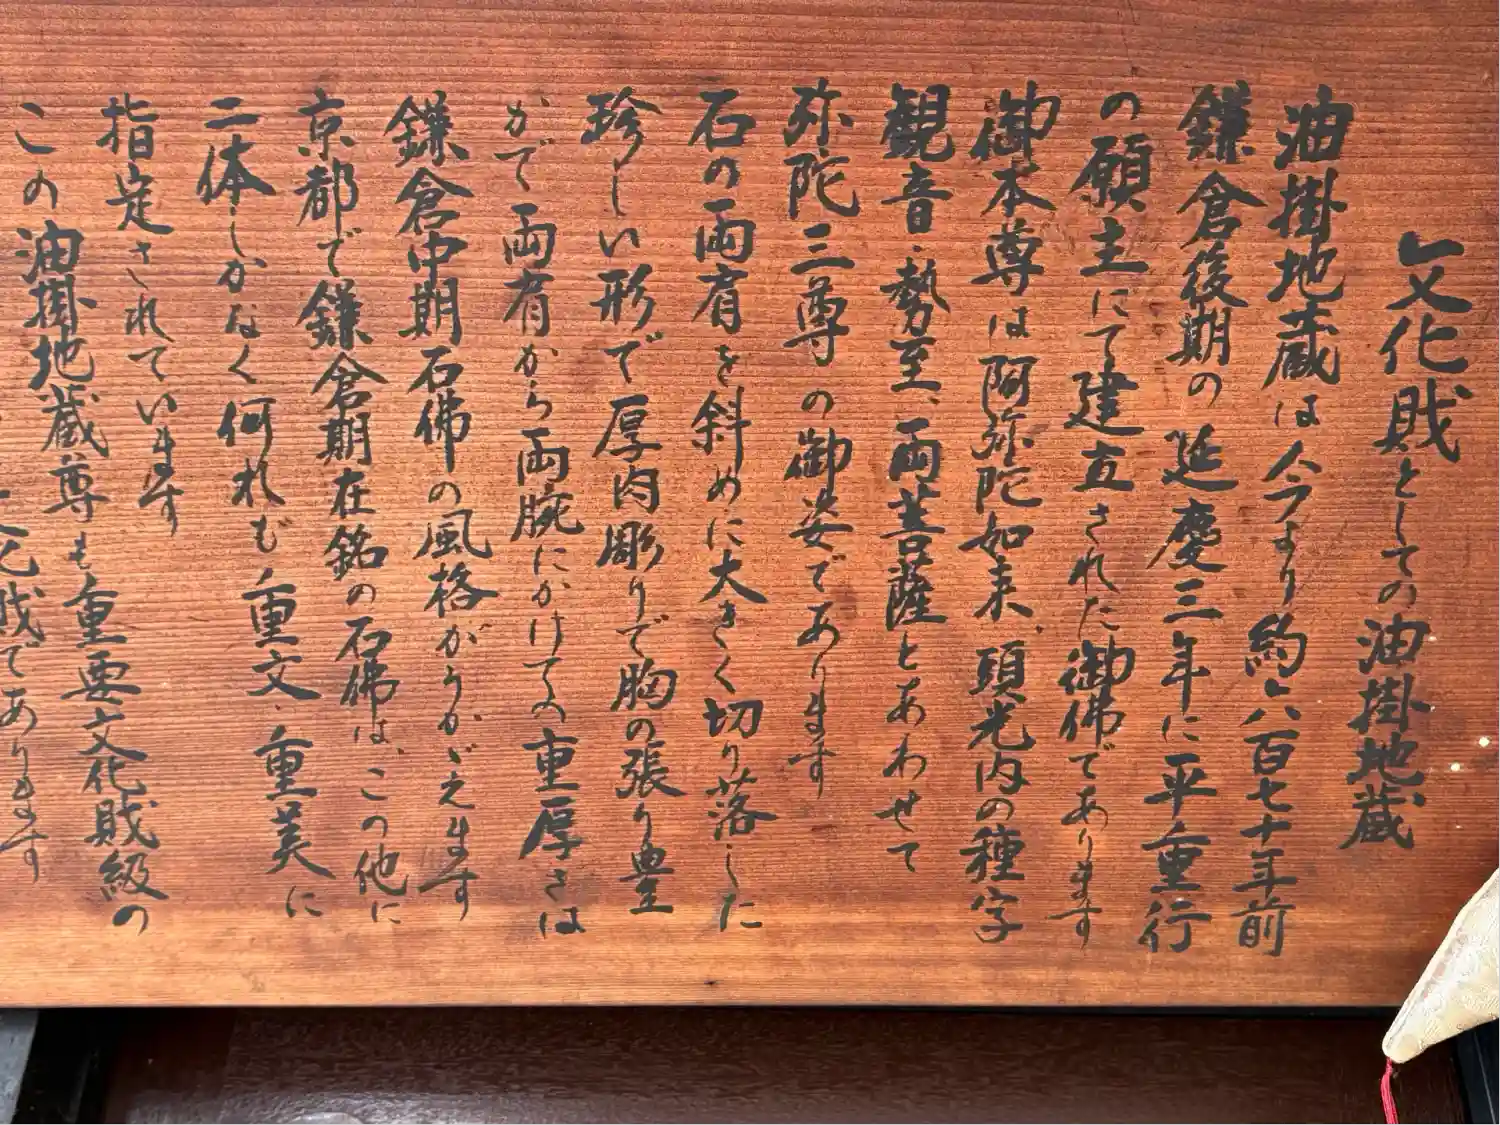 文化財としての油掛地蔵
油掛地蔵は今より約六百七十年前
鎌倉後期の延慶三年に平重行
の願主にて建立された御佛であります
御本尊は阿弥陀如来、頭光内の種字
観音、勢至、両菩薩とあわせて
弥陀三尊の御姿であります
石の両肩を斜めに大きく切り落した
珍しい形で厚肉彫りで胸の張り豊
かで両肩から両腕にかけての重厚さは
鎌倉中期石佛の風格がうかゞえます
京都で鎌倉期在銘の石佛は、この他に
二体しかなく何れも重文、重美に
指定されています
この油掛地蔵尊も重要文化財級の
文化財であります